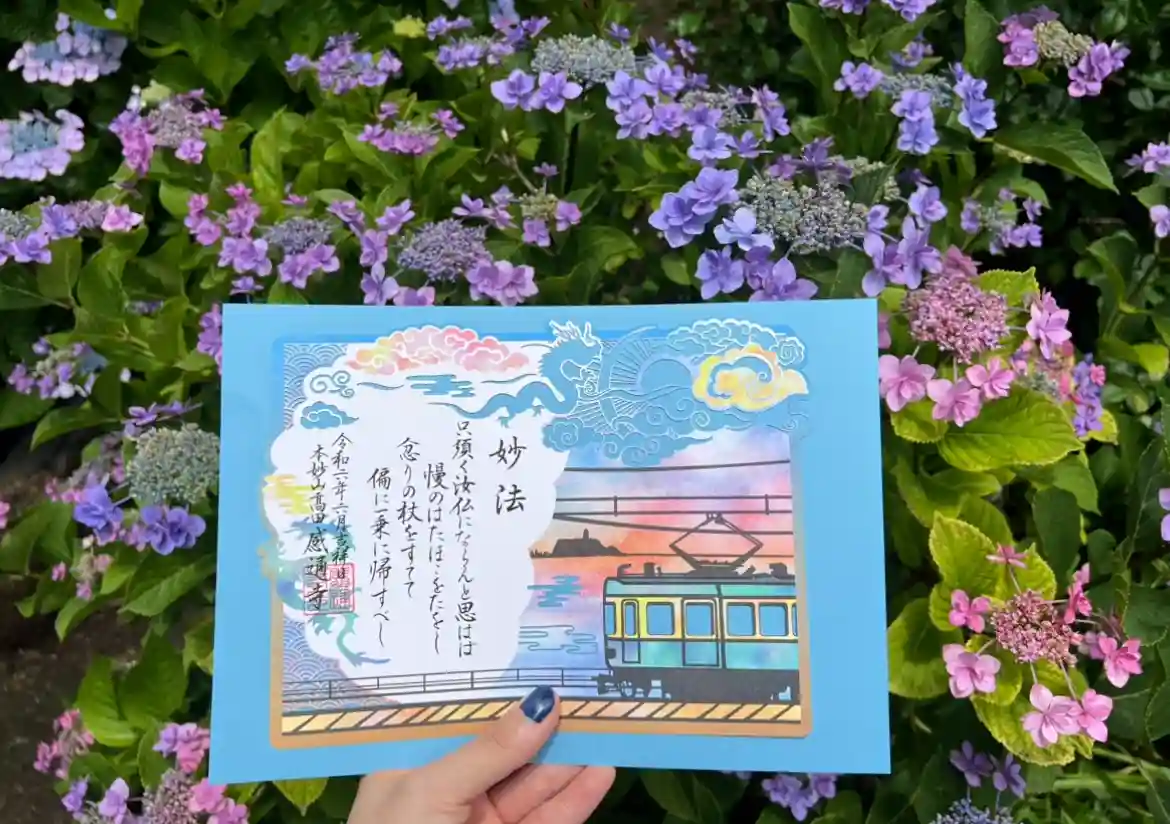 妙法
只須く汝仏にならんと思はは
慢のはたほこをたをし
忿りの杖をすてて
偏に一乗に帰すべし
令和六年六月吉祥日
本妙山高田感通寺